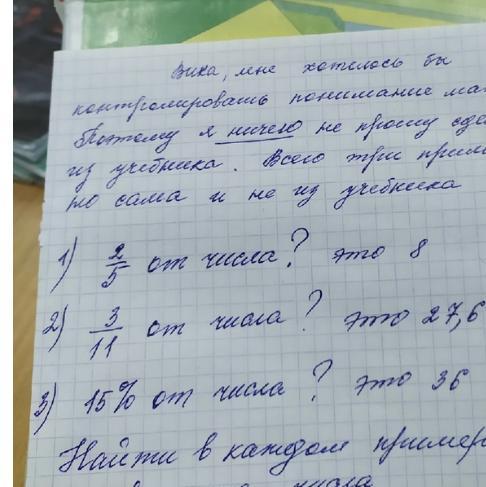 Вика, мне хотелось бы
контролировать понимание мат
Поэтому я ничего не прошу сде
из учебника. Всего три прим
но сама и не из учебника
1) 2/5 от числа? это 8
2) 3/11 от числа? это 27,6
3) 15% от числа? это 36
Найти в каждом пример
числа